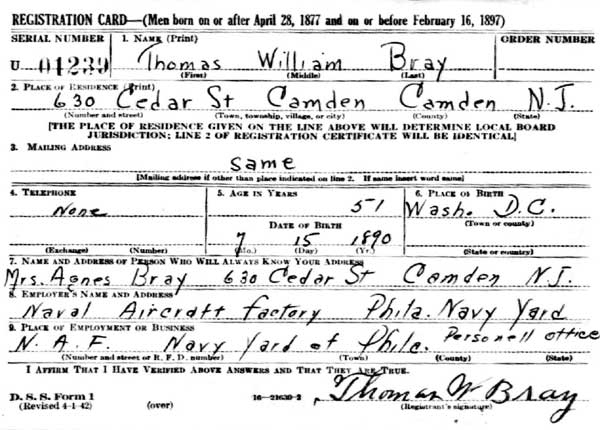 REGISTRATION CARD—(Men born on or after April 28, 1877 and on or before February 16, 1897)
SERIAL NUMBER 1. NAME (Print) ORDER NUMBER
U 01239 Thomas William Bray
(First) (Middle) (Last)
2. PLACE OF RESIDENCE (Print)
630 Cedar St Camden Camden N.J.
(Number and street) (Town, township, village, or city) (County) (State)
[THE PLACE OF RESIDENCE GIVEN ON THE LINE ABOVE WILL DETERMINE LOCAL BOARD
JURISDICTION; LINE 2 OF REGISTRATION CERTIFICATE WILL BE IDENTICAL]
3. MAILING ADDRESS
Same
[Mailing address if other than place indicated on line 2. If same insert word same]
4. TELEPHONE 5. AGE IN YEARS 6. PLACE OF BIRTH
None 51 Wash. D.C.
DATE OF BIRTH (Town or county)
7 15 1890
(Exchange) (Number) (Mo.) (Day) (Yr.) (State or country)
7. NAME AND ADDRESS OF PERSON WHO WILL ALWAYS KNOW YOUR ADDRESS
Mrs. Agnes Bray 630 Cedar St Camden N.J.
8. EMPLOYER'S NAME AND ADDRESS
Naval Aircraft factory Phila. Navy Yard
9. PLACE OF EMPLOYMENT OR BUSINESS
N.A.F. Navy Yard of Phila. Personell office
(Number and street or R. F. D. number) (Town) (County) (State)
I AFFIRM THAT I HAVE VERIFIED ABOVE ANSWERS AND THAT THEY ARE TRUE.
D. S. S. Form 1
(Revised 4-1-42) (over) 16—21630-2 Thomas W Bray
(Registrant's signature)